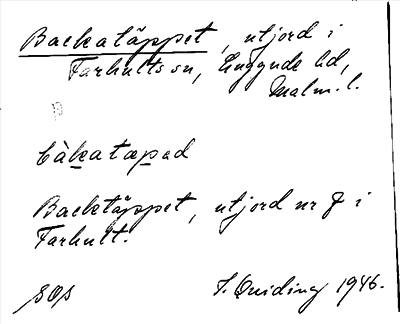 Backatäppet, utjord i
Farhults sn, Luggude hd,
Malm. l.
bàkatæpad
Backtäppet, utjord nr 7 i
Farhult.
SOS
J. Quiding 1946.